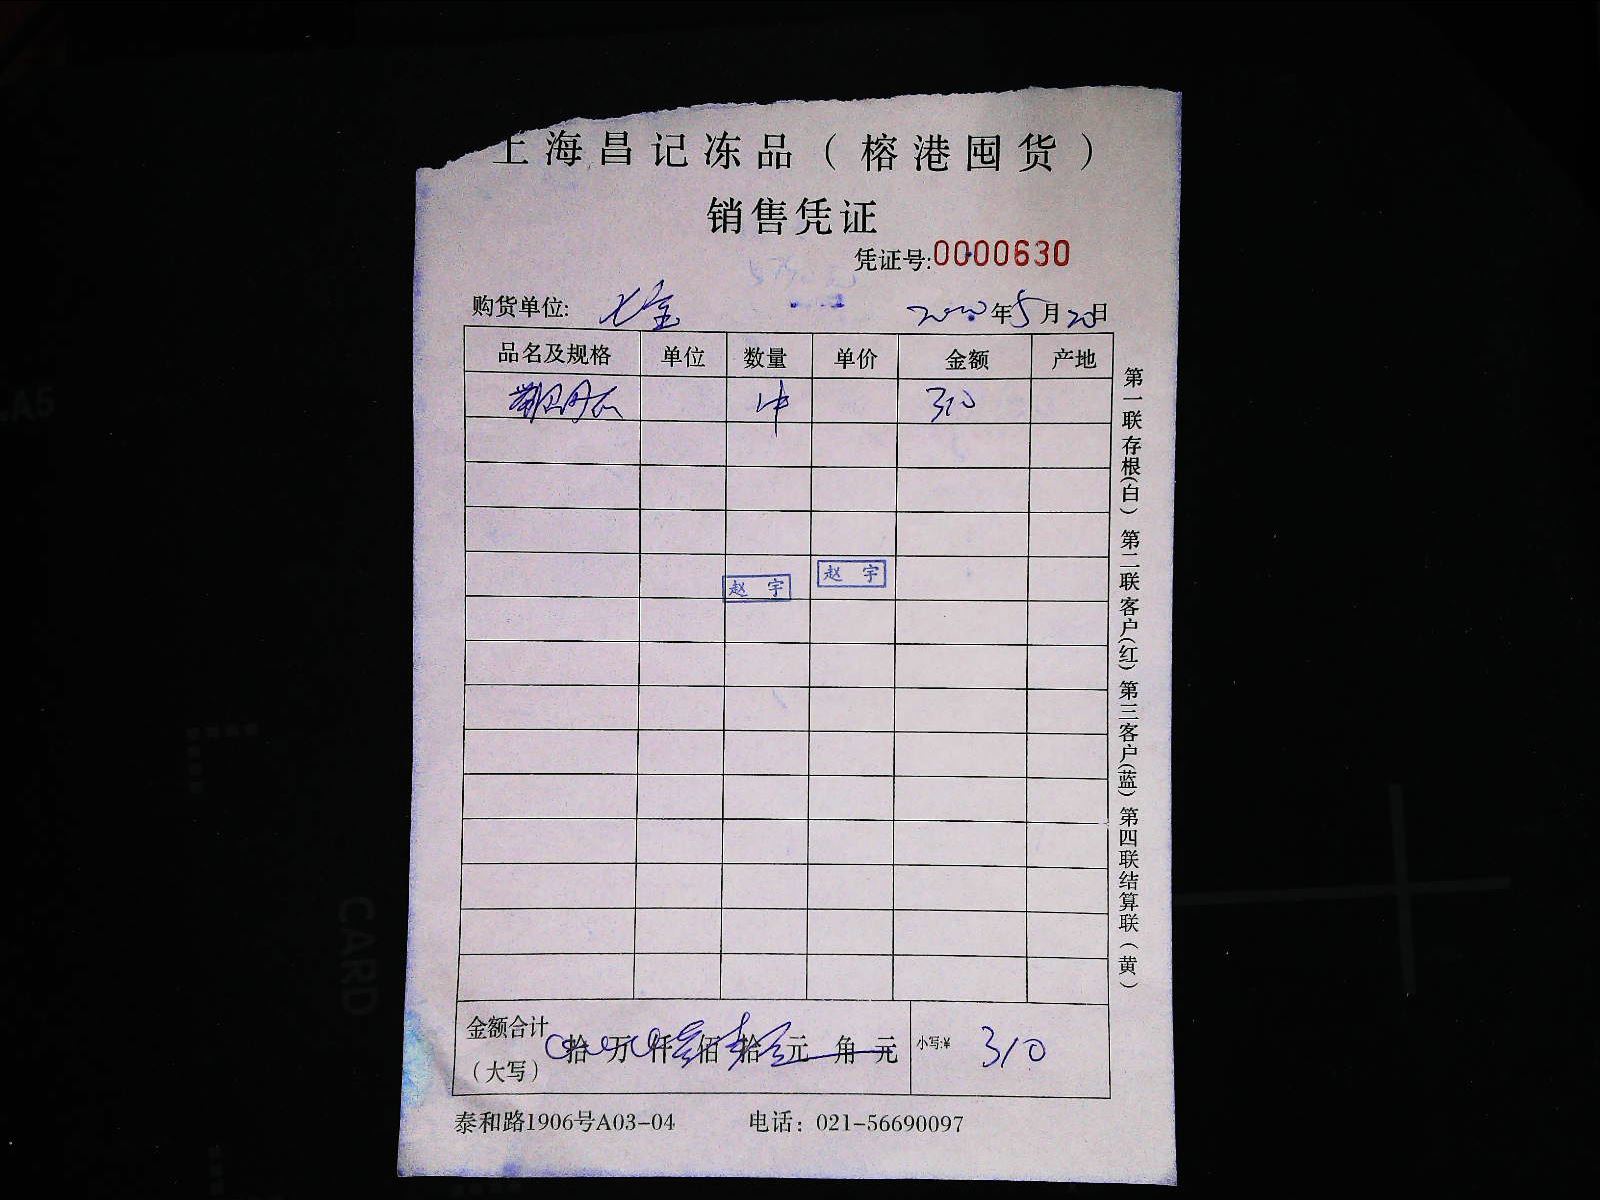 上海昌记冻品（榕港囤货）
销售凭证
凭证号:0000630
购货单位: 七宝 2020年5月20日
品名及规格 单位 数量 单价 金额 产地
1件 310
赵 宇 赵 宇
金额合计 拾 万 仟 叁佰 壹拾 元 角 元 小写:¥ 310
（大写）
泰和路1906号A03-04 电话：021-56690097
第一联存根(白) 第二联客户(红) 第三客户(蓝) 第四联结算联(黄)
A5
CARD